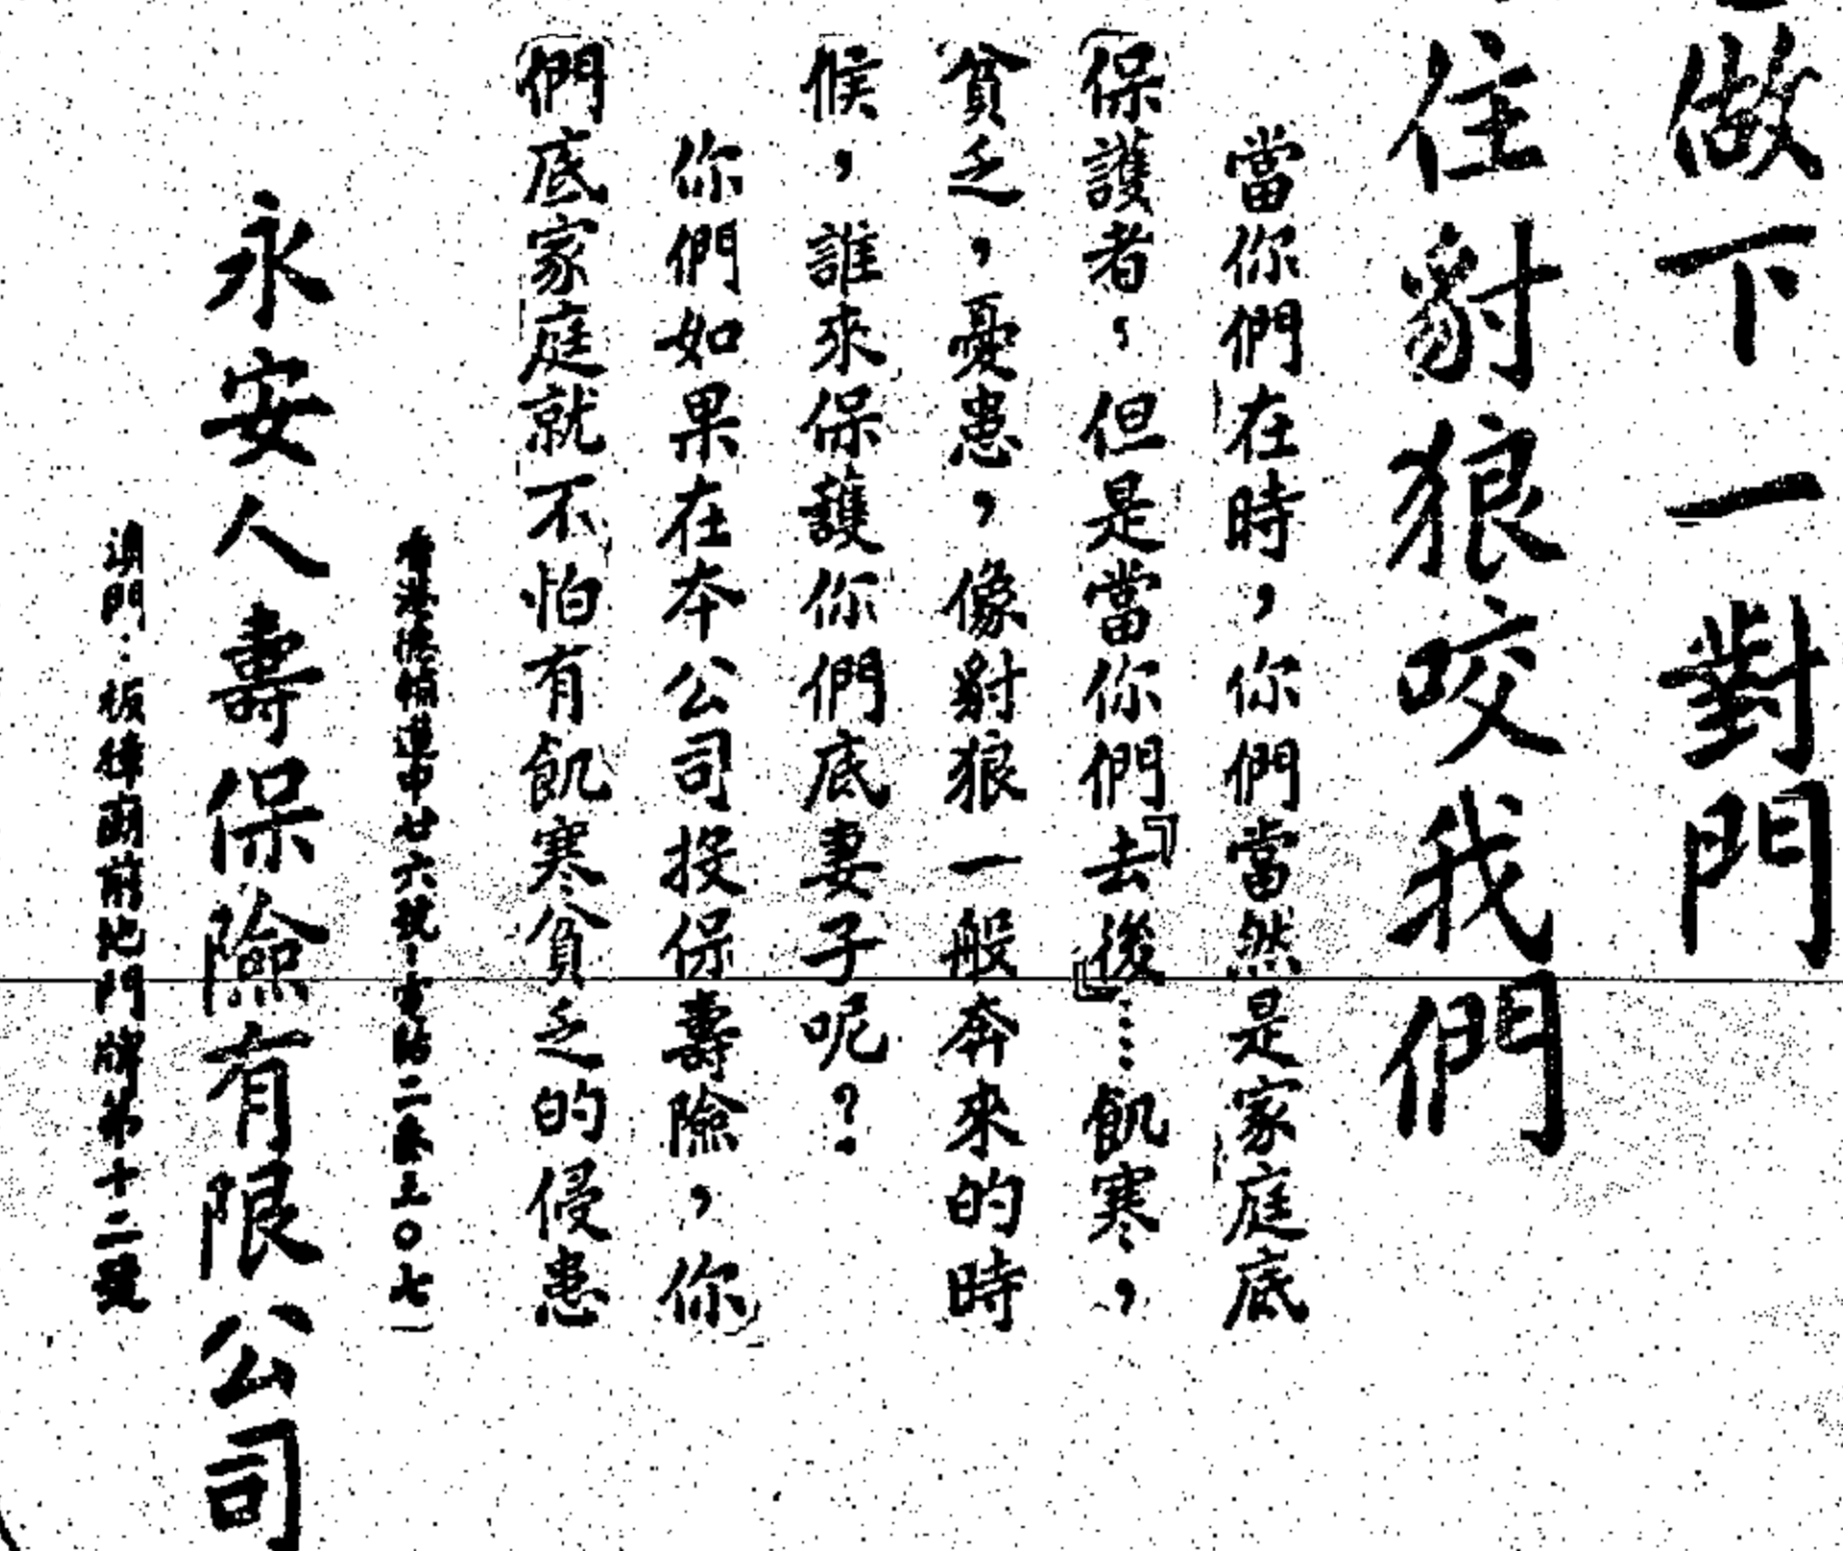 做下一對門
住豺狼咬我們
當你們在時，你們當然是家庭底
保護者，但是當你們『去後』……飢寒，
貧乏，憂患，像豺狼一般奔來的時
候，誰來保護你們底妻子呢？
你們如果在本公司投保壽險，你
們底家庭就不怕有飢寒貧乏的侵患
香港德輔道中廿六號・電話二
永安人壽保險有限公司
澳門：板樟廟前地門牌第十二號